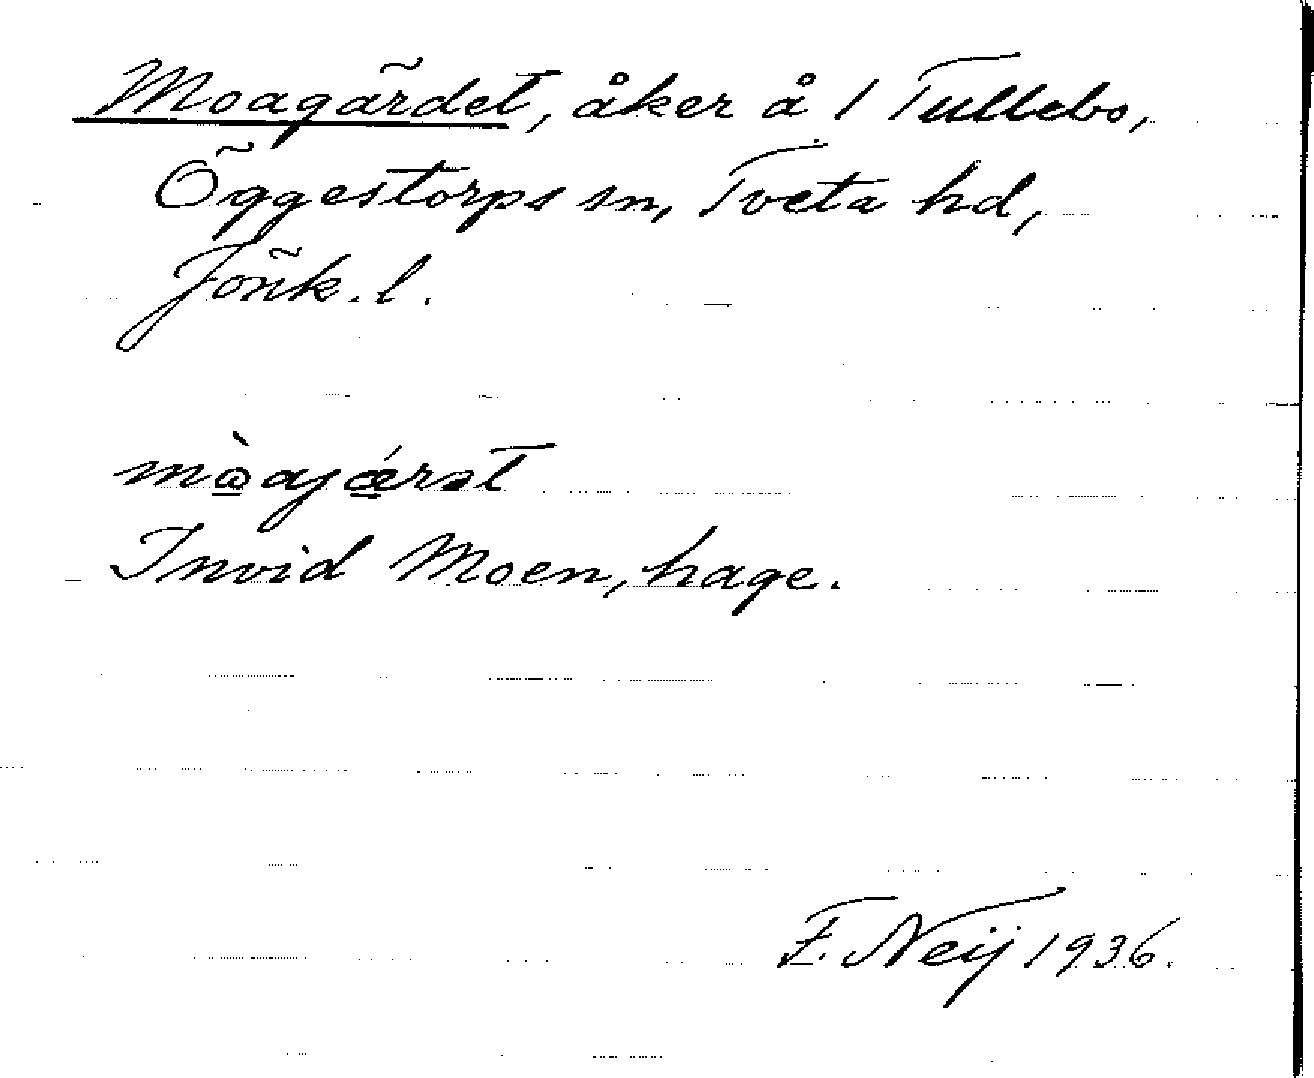 Moagärdet, åker å 1 Tullebo,
Öggestorps sn, Tveta hd,
Jönk. l.
mɷ̀ajǽrət
Invid Moen, hage.
F. Neij 1936.